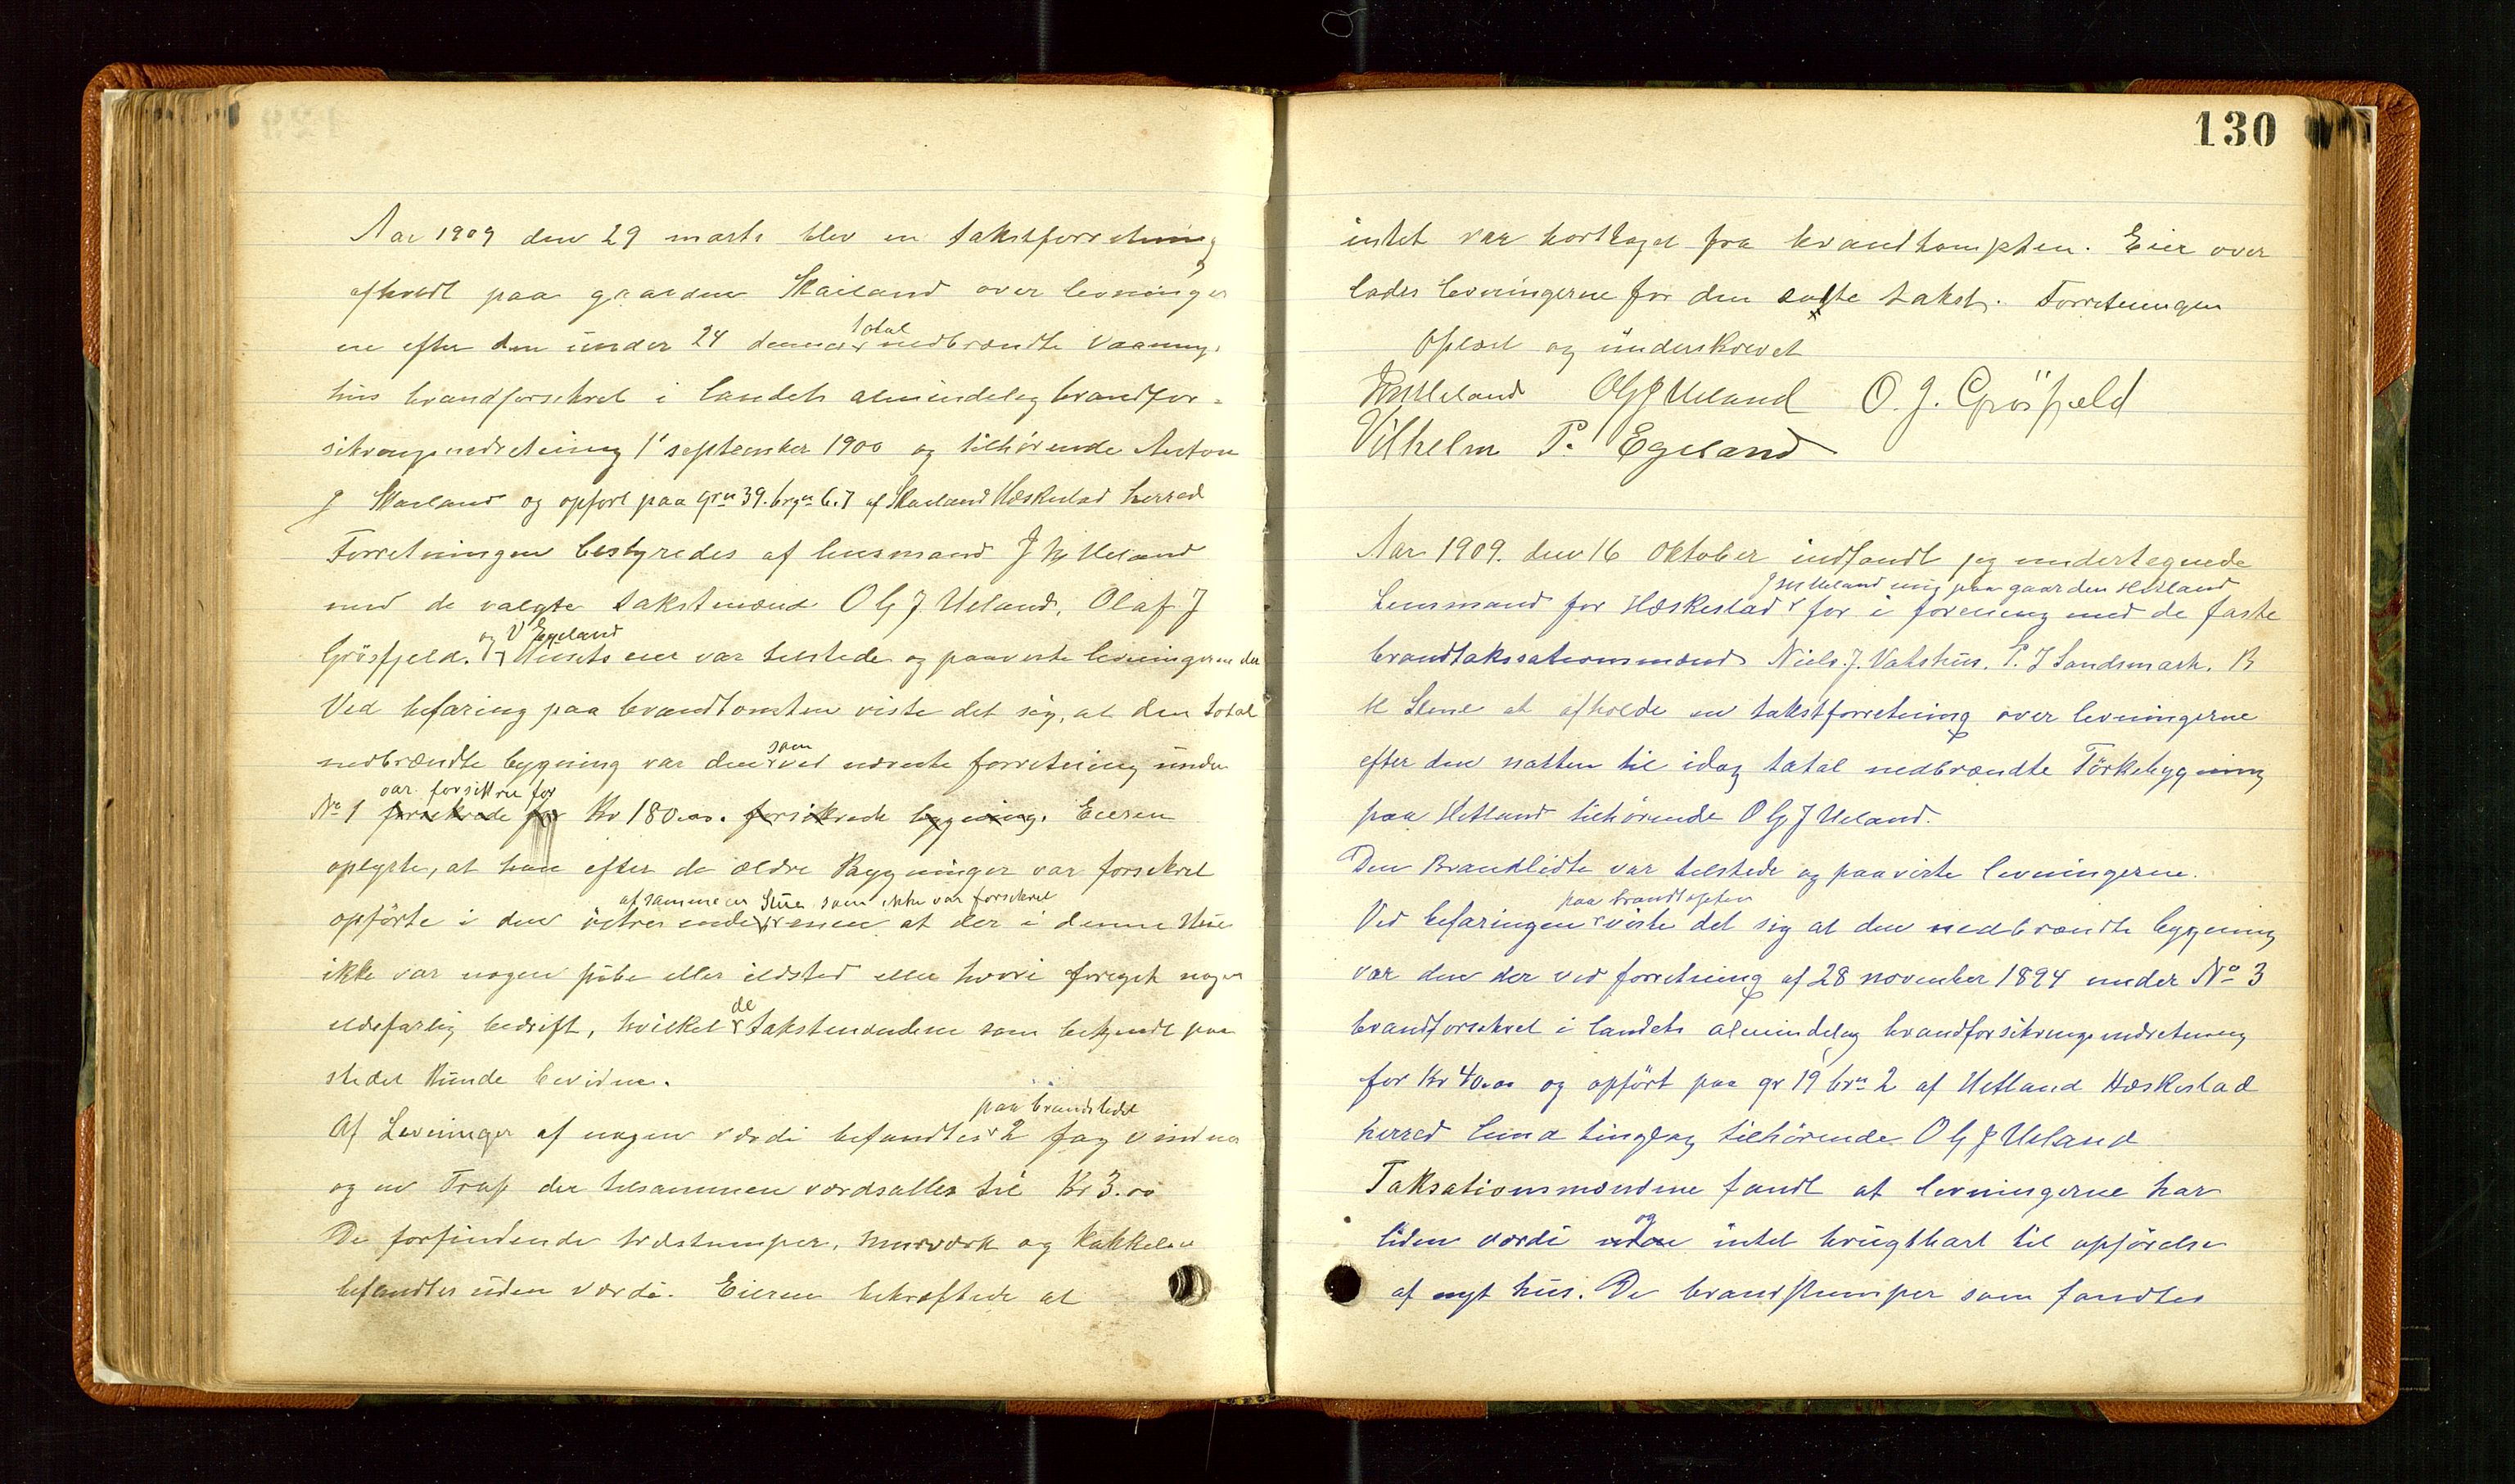 Aar 1909 den 29 marts blev en takstforretning
afholdt paa gaarden Skailand over levninger
ne efter den under 24 dennes total nedbrændte Vaanings
hus brandforsikret i landets almindelig brandfor-
sikringsindretning 1' september 1900 og tilhørende Anton
J Skailand og opført paa grn 39. brgn 6.7 af Skailand Heskestad herred
Forretningen bestyredes af lensmand J M Ueland
med de valgte takstmænd O G J Ueland, Olaf J
Grösfjeld. og V Egeland Husets eier var tilstede og paaviste levningerne der
Ved befaring paa brandtomten viste det sig, at den total
nedbrændte bygning var den som ved nævnte forretning under
No 1 forsikrede for var forsikrer for Kr 180.00. forsikrede bygning. Eieren
oplyste, at han efter de ældre Bygninger var forsikret
opførte i den østre ende af samme en Stue som ikke var forsikret men at der i denne Stue
ikke var nogen pibe eller ildsted eller hvori foregik nogen
ildsfarlig bedrift, hvilket de takstmændene som bekjendt paa
stedet kunde bevidne.
Af Levninger af nogen værdi befandtes paa brandstedet 2 fag vinduer
og en Trap der tilsammen værdsattes til Kr 3.00
De forfindende træstumper, murværk og kakkelov
befandtes uden værdi. Eieren bekræftede at
130
intet var borttaget fra brandtompten. Eier over
lades levningerne for den satte takst. Forretningen
oplæst og underskrevet
JMUeland OGJUeland O. J. Grösfjeld
Vilhelm P. Egeland
Aar 1909. den 16 Oktober indfandt jeg undertegnede
Lensmand for Heskestad J M Ueland mig paa gaarden Hetland for i forening med de faste
brandtaksationsmænd Niels. J. Vatshus. P. J Sandsmark. B
H Stene at afholde en takstforretning over levningerne
efter den natten til idag total nedbrændte Törkebygning
paa Hetland tilhørende O G J Ueland.
Den Brandlidte var tilstede og paaviste levningerne.
Ved befaringen paa brandtopten viste det sig at den nedbrændte bygning
var den der ved forretning af 28 november 1894 under No 3
brandforsikret i landets almindelig brandforsikringsindretning
for Kr 40.00 og opført paa gr 19 brn 2 af Hetland Heskestad
herred Lund tinglag tilhørende O G J Ueland
Taksationsmændene fandt at levningerne har
liden værdi uden og intet brugtbart til opførelse
af nyt hus. De brandstumper som fandtes